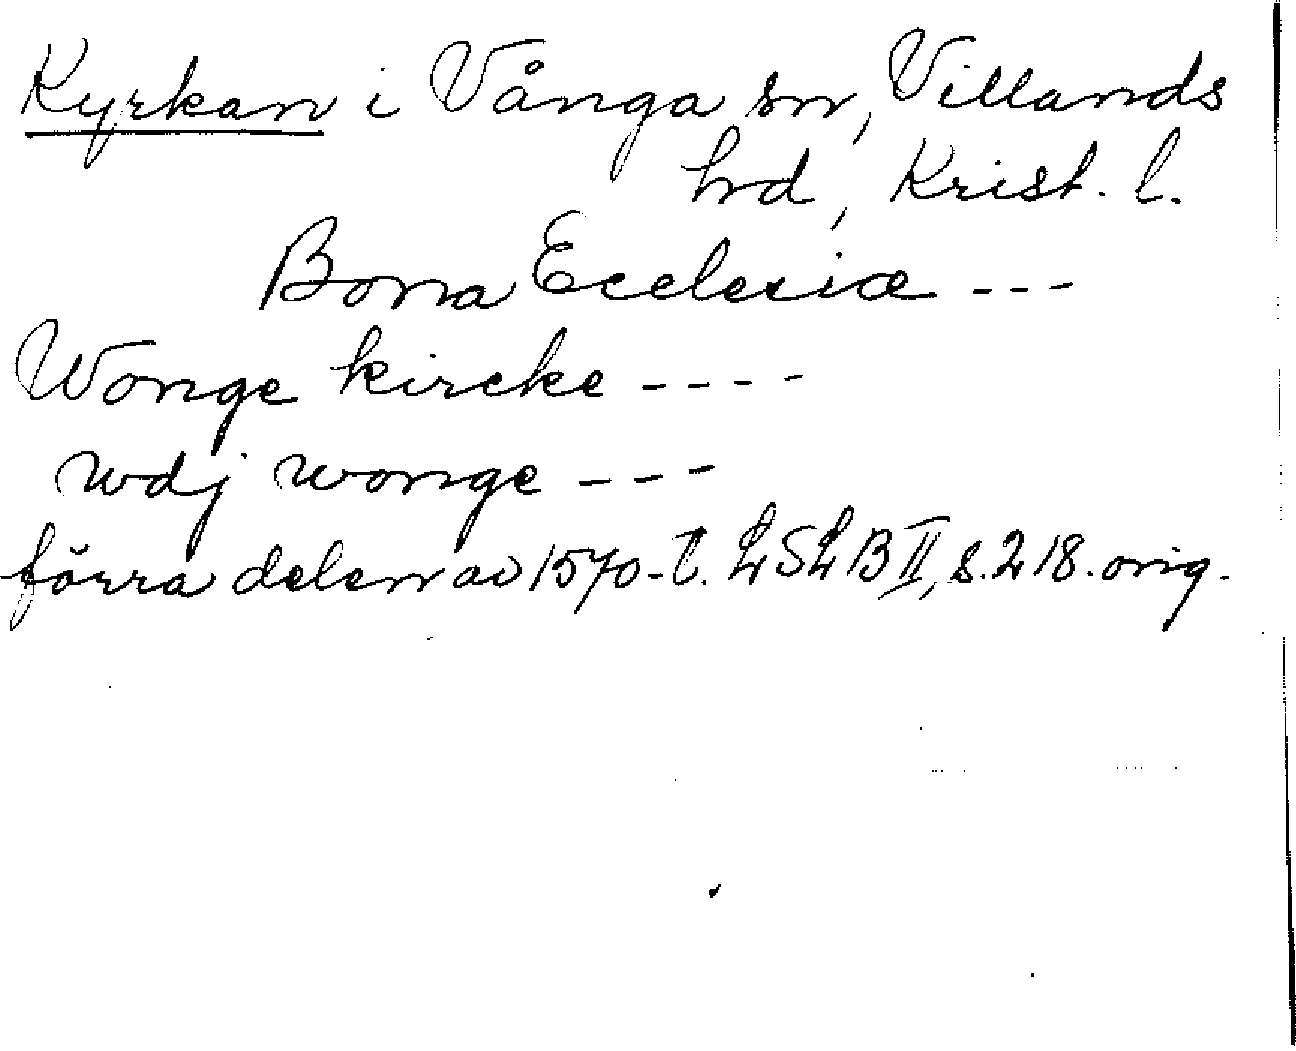 Kyrkan i Vånga sn, Villands
hd, Krist. l.
Bona Ecclesiæ ---
Wonge kircke ----
wdj wonge ---
förra delen av 1570-t. LSLB II, s. 218. orig.